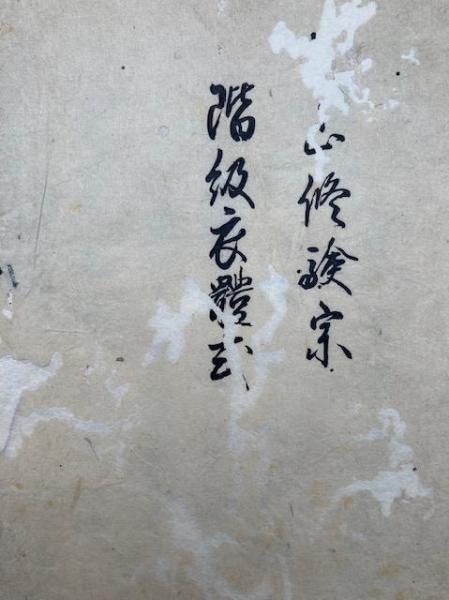 山修験宗
階級衣體式